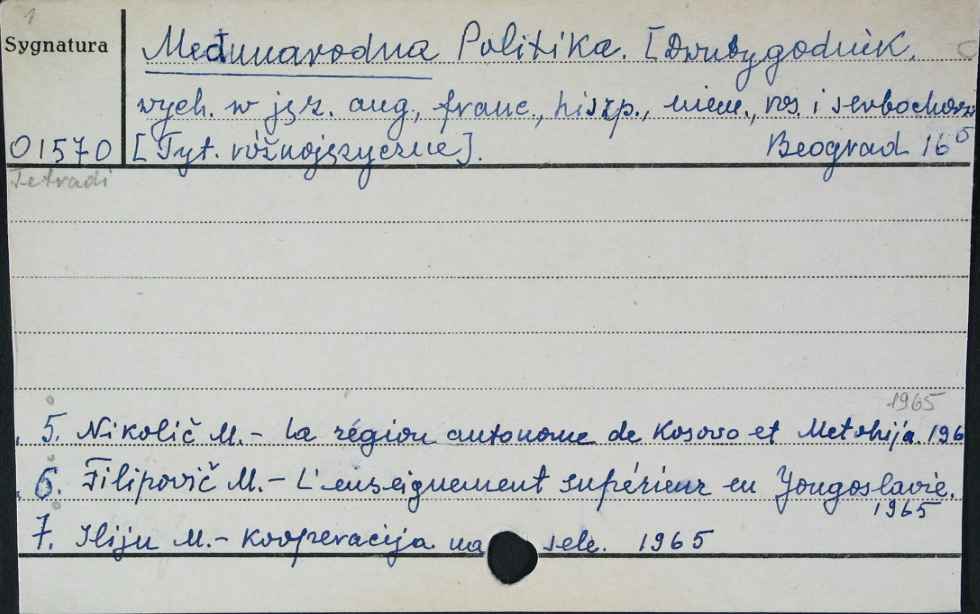 1
Sygnatura
Međunarodna Politika. [Dwutygodnik.
wych. w jęz. ang., franc., hiszp., niem., ros. i serbochorw
01570 [Tyt. różnojęzyczne]. Beograd 16°
Tetradi
1965
5. Nikolič M. - La région autonome de Kosovo et Metohija. 196
6. Filipovič M. - L'enseignement supérieur en Yougoslavie.
1965
7. Iliju M. - Kooperacija na sele. 1965